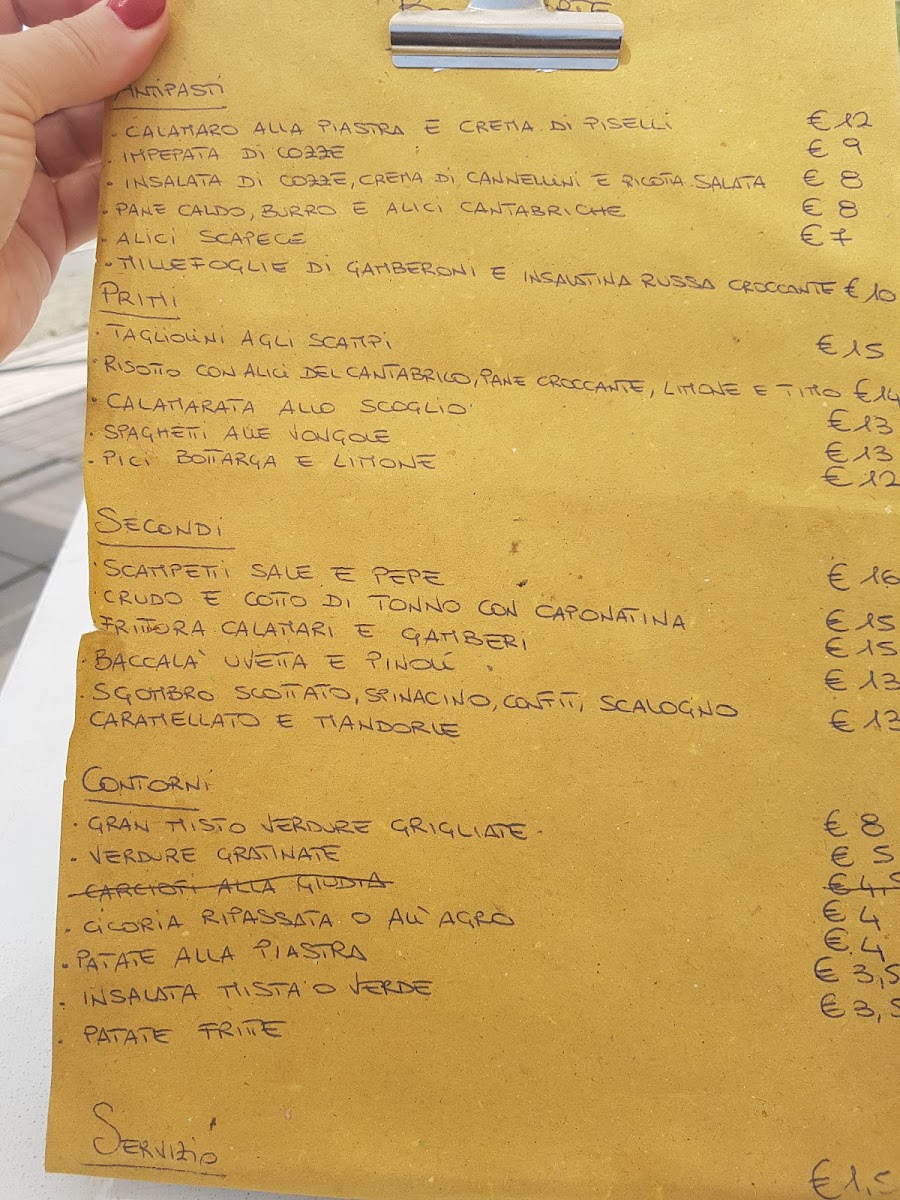 ANTIPASTI
· CALAMARO ALLA PIASTRA E CREMA DI PISELLI € 12
· IMPEPATA DI COZZE € 9
· INSALATA DI COZZE, CREMA DI CANNELLINI E RICOTTA SALATA € 8
· PANE CALDO, BURRO E ALICI CANTABRICHE € 8
· ALICI SCAPECE € 7
· MILLEFOGLIE DI GAMBERONI E INSALATINA RUSSA CROCCANTE € 10
PRIMI
· TAGLIOLINI AGLI SCAMPI € 15
· RISOTTO CON ALICI DEL CANTABRICO, PANE CROCCANTE, LIMONE E TIMO € 14
· CALAMARATA ALLO SCOGLIO € 13
· SPAGHETTI ALLE VONGOLE € 13
· PICI BOTTARGA E LIMONE € 12
SECONDI
· SCAMPETTI SALE E PEPE € 16
· CRUDO E COTTO DI TONNO CON CAPONATINA € 15
· FRITTURA CALAMARI E GAMBERI € 15
· BACCALA' UVETTA E PINOLI € 13
· SGOMBRO SCOTTATO, SPINACINO, CONFIT, SCALOGNO
CARAMELLATO E MANDORLE € 13
CONTORNI
· GRAN MISTO VERDURE GRIGLIATE € 8
· VERDURE GRATINATE € 5
CARCIOFI ALLA GIUDIA € 4,5
· CICORIA RIPASSATA O ALL'AGRO € 4
· PATATE ALLA PIASTRA € 4
· INSALATA MISTA O VERDE € 3,5
· PATATE FRITTE € 3,5
SERVIZIO € 1,5